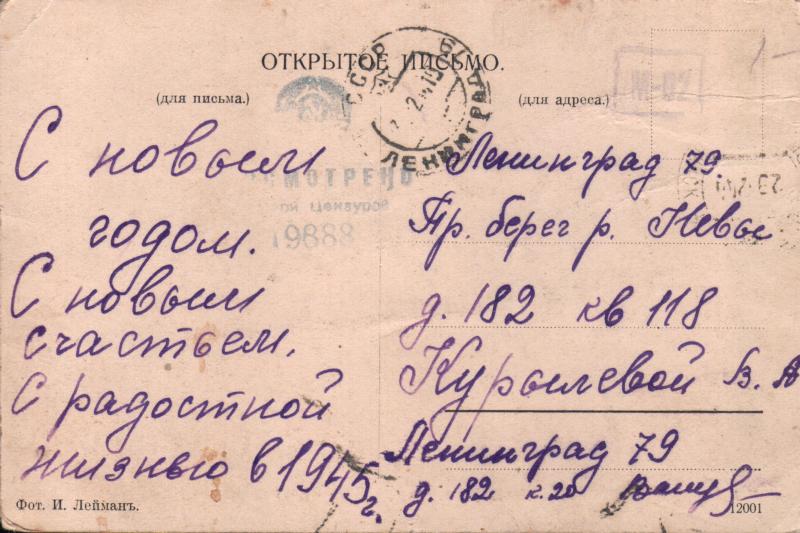 ОТКРЫТОЕ ПИСЬМО.
(для письма.)
(для адреса.)
СССР
ЛЕНИНГРАД
М-82
С новым
годом.
С новым
счастьем.
С радостной
жизнью в 1945 г.
СМОТРЕНО
ой Цензурой
19688
Ленинград 79.
Пр. берег р. Невы
д. 182 кв 118
Курылевой В. А
Ленинград 79
д. 182 к. 20
Фот. И. Лейманъ.
12001